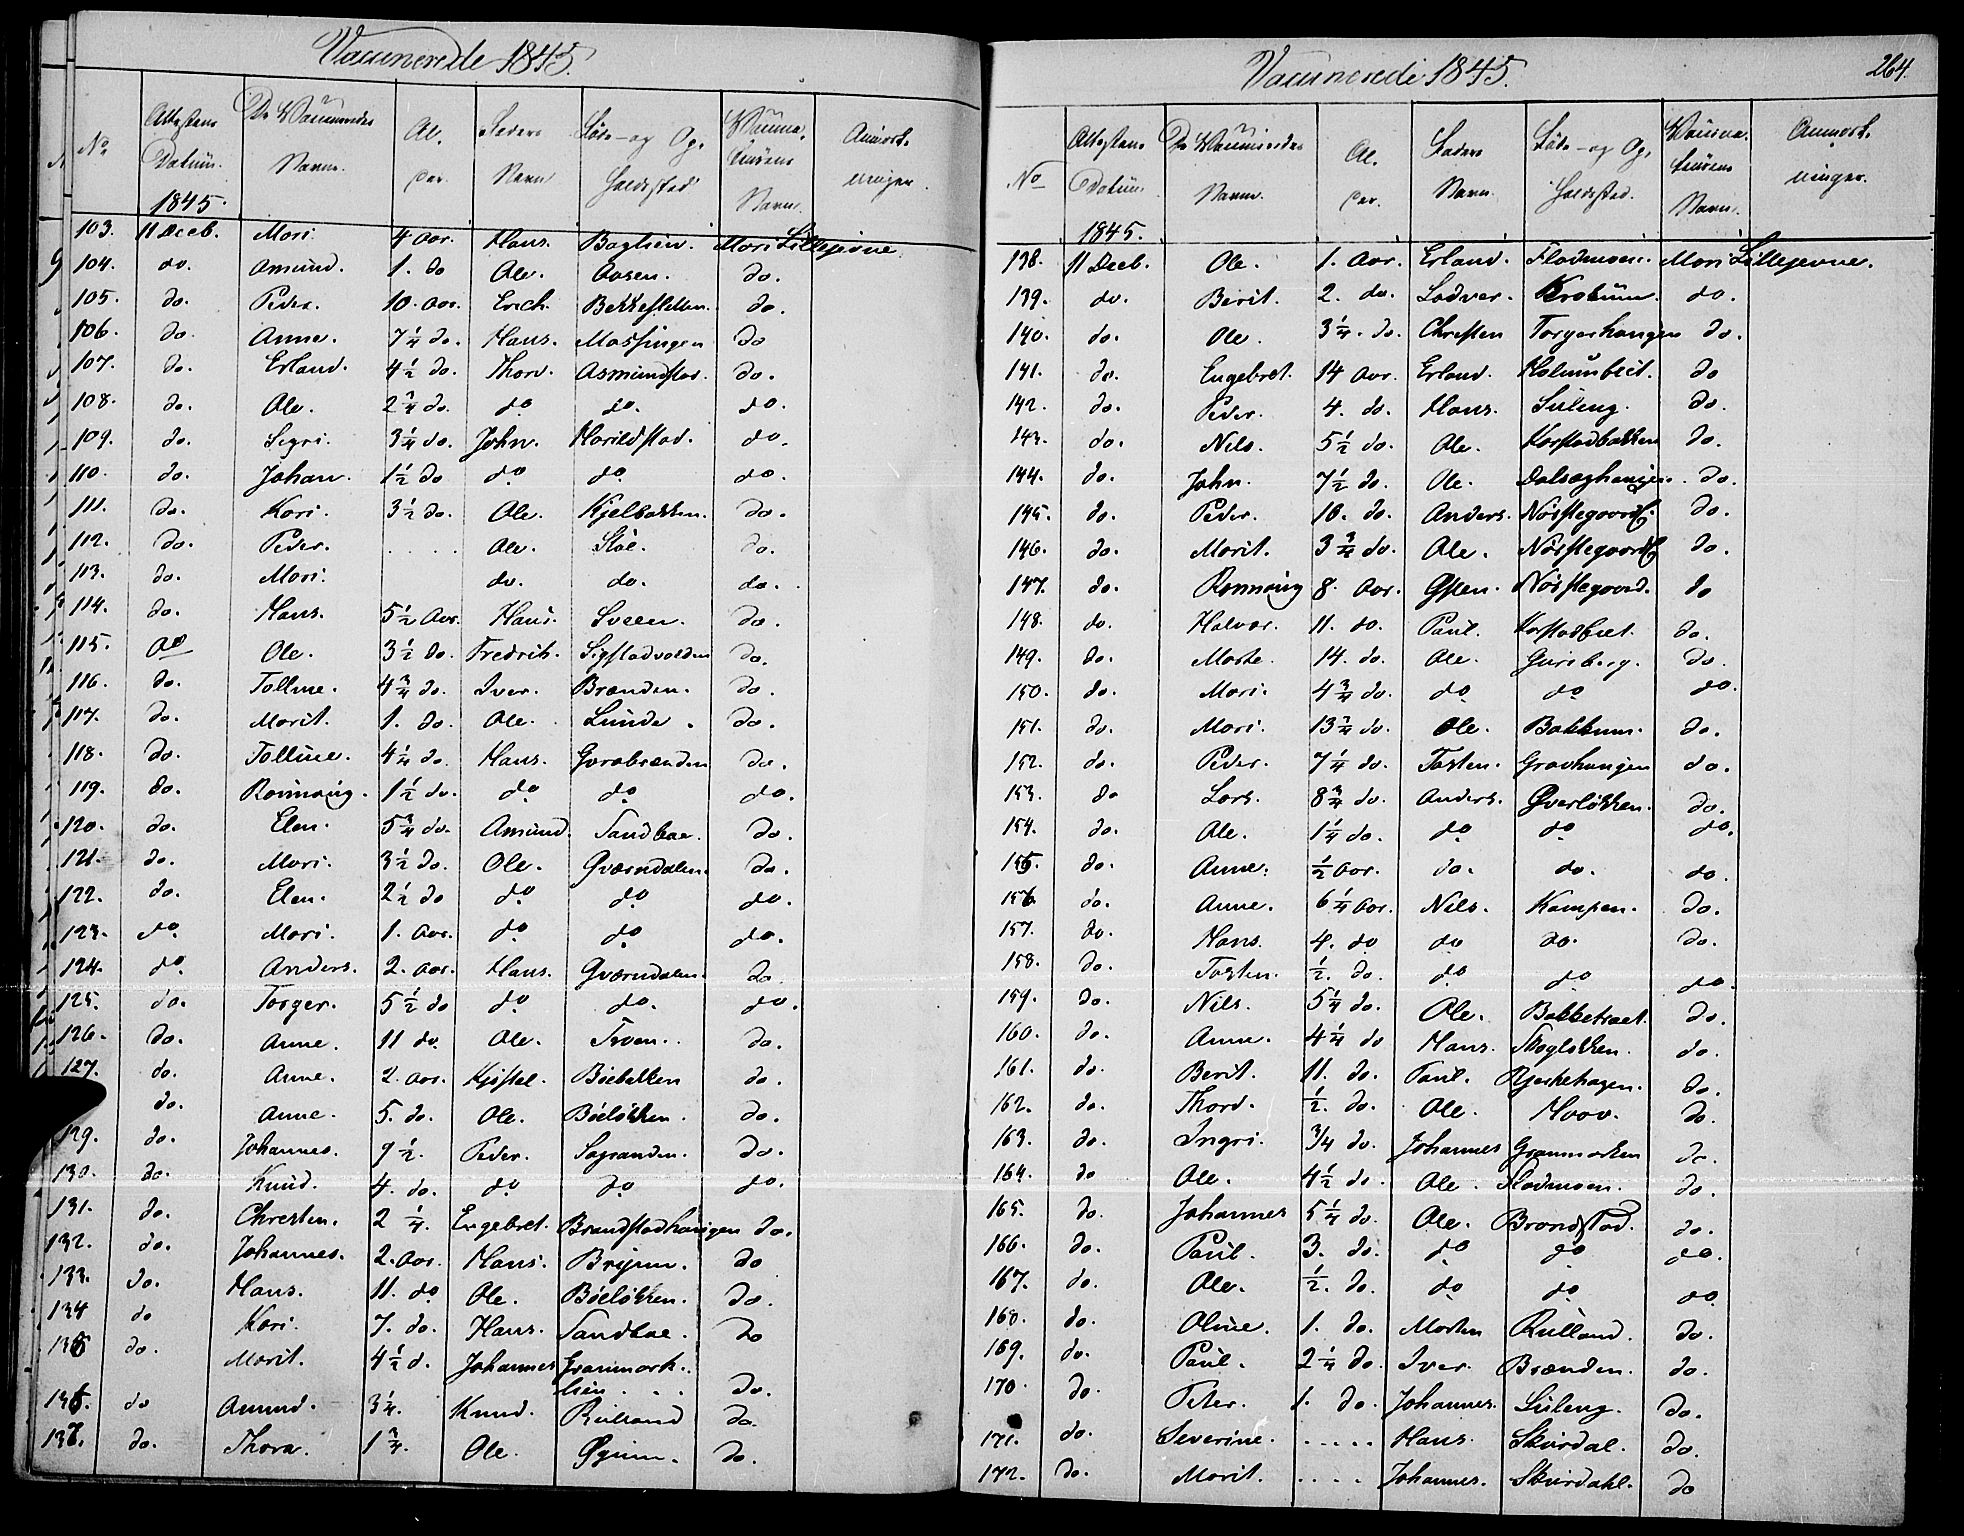 Vaccinerede 1845.
No. | Attestens Datum. 1845. | De Vaccineredes Navn. | Al- der. | Faders Navn | Føde- og Op- holdssted | Vaccina- teurens Navn. | Anmærk- ninger.
103. 11 Decb. Mari 4 Aar. Hans. Baglien. Mari Lillejevne.
104. do. Amund. 1. do Ole. Aasen. do.
105. do. Peder. 10. Aar. Erich. Bekkesletten. do.
106. do. Anne. 7 1/4 do. Hans. Massingen do
107. do. Erland. 4 1/2 do. Thord. Asmundstad. do.
108. do. Ole. 2 3/4 do. do do. do.
109. do. Sigri. 3 1/4 do. John. Harildstad. do.
110. do. Johan. 1 1/2 do do do. do.
111. do. Kari. 3 1/2 do. Ole. Kjelbakken. do.
112. do. Peder. .... Ole. Støe. do.
113. do. Mari. do. do. do.
114. do. Hans. 5 1/2 Aar. Hans. Sveen. do.
115. do Ole. 3 1/2 do. Fredrik. Sigstadvolden do.
116. do. Tolline. 4 3/4 do. Iver. Brænden. do.
117. do. Marit. 1. do. Ole. Lunde. do.
118. do. Tolline. 4 1/4 do. Hans. Gvrabrænden do.
119. do. Rønnoug. 1 1/2 do. do do do.
120. do. Elen. 5 3/4 do. Amund. Sandboe. do.
121. do. Mari. 3 1/2 do. Ole. Qværndalen. do.
122. do. Elen. 2 1/2 do do do do.
123. do Mari. 1. Aar. do do do.
124. do Anders. 2. Aar. Hans. Qværndalen. do
125. do. Torger. 5 1/2 do do do. do.
126. do. Anne. 11 do. Ole. Troen. do.
127. do. Anne. 2. Aar. Kjøstel. Bøebakken do.
do. Anne. 5. do. Ole. Bøeløkken. do.
129. do. Johannes. 9 1/2. Peder. Sagranden. do.
130. do. Knud. 4. do. do do do.
131. do. Christen. 2 1/4. Engebret. Brandstadhaugen do.
132. do. Johannes. 2. Aar. Hans. Bryum. do
133. do. Hans. 11. do Ole. Bøeløkken. do.
134 do Kari. 7. do. Hans. Sandboe. do
135 do. Marit. 4 1/2 d. Johannes Grønmork-
lien . . . do.
136. do Amund. 3 1/4. Knud. Rusland do.
137. do. Thora. 1 3/4. Ole. Øyum. do.
Vaccinerede 1845.
264.
No | Attestens Datum. 1845. | De Vaccineredes Navn. | Al- der. | Faders Navn. | Føde- og Op- holdssted. | Vaccina- teurens Navn. | Anmærk- ninger.
138. 11 Decb. Ole. 1. Aar. Erland. Fladmoen. Mari Lillejevne.
139. do. Berit. 2. do. Ladver. Krokum. do.
140. do. Ole. 3 1/4. do. Christen Torgerhaugen do.
141. do. Engebret. 14 Aar. Erland. Holumbeit. do
142. do. Peder. 4. do. Hans. Suleng. do.
143. do. Nils. 5 1/2 do. Ole. Korstadbakken do.
144. do. John. 7 1/2 do. Ole. Dalseghaugen. do.
145. do. Peder. 10. do. Anders. Nørstegaard. do.
146. do. Marit. 3 3/4 do. Ole. Nørstegaard do.
147. do. Rønnoug 8. Aar. Østen. Nørstegaard. do
148. do. Halvor. 11. do. Paul. Korstadbret. do.
149. do. Marte. 14. do. Ole. Guriberg. do.
150. do. Mari. 4 3/4 do. do do do.
151. do. Mari. 13 3/4 do. Ole. Bakkum. do.
152. do. Peder. 7 1/4 do. Tosten. Gravhaugen do.
153. do Lars. 8 3/4 do. Anders. Øverløkken. do.
154. do. Ole. 1 1/4 do. do do do.
155. do. Anne. 1/2 Aar. do. do. do.
156 do. Anne. 6 1/4 Aar. Nils. Kampen. do.
157. do. Hans. 4. do do do. do.
158. do. Tosten. 1/2. do. do do do.
159. do. Nils. 5 1/4 do. Ole. Bakketraet. do.
160. do. Anne. 4 1/4 do Hans. Skogløkken. do.
161. do. Berit. 11. do. Paul. Bjerkehagen. do.
162. do. Thord. 1/2. do. Ole. Hoov. do.
163. do. Ingri. 3/4 do. Johannes Grønmorken do.
164. do Ole. 4 1/2 do. Ole. Fladmoen. do.
165. do. Johannes 5 1/4 do. Ole. Brandstad. do.
166. do. Paul. 3. do. do do do.
167. do. Ole. 1/2. do. do do do.
168. do. Oline. 1. do. Morten Rulland. do.
169. do. Paul. 2 1/4 do. Iver. Brænden. do.
170 do. Peter. 1. do. Johannes. Suleng. do.
171. do. Severine. .... Hans. Skurdal. do.
172. do. Marit. .... Johannes. Skurdahl. do